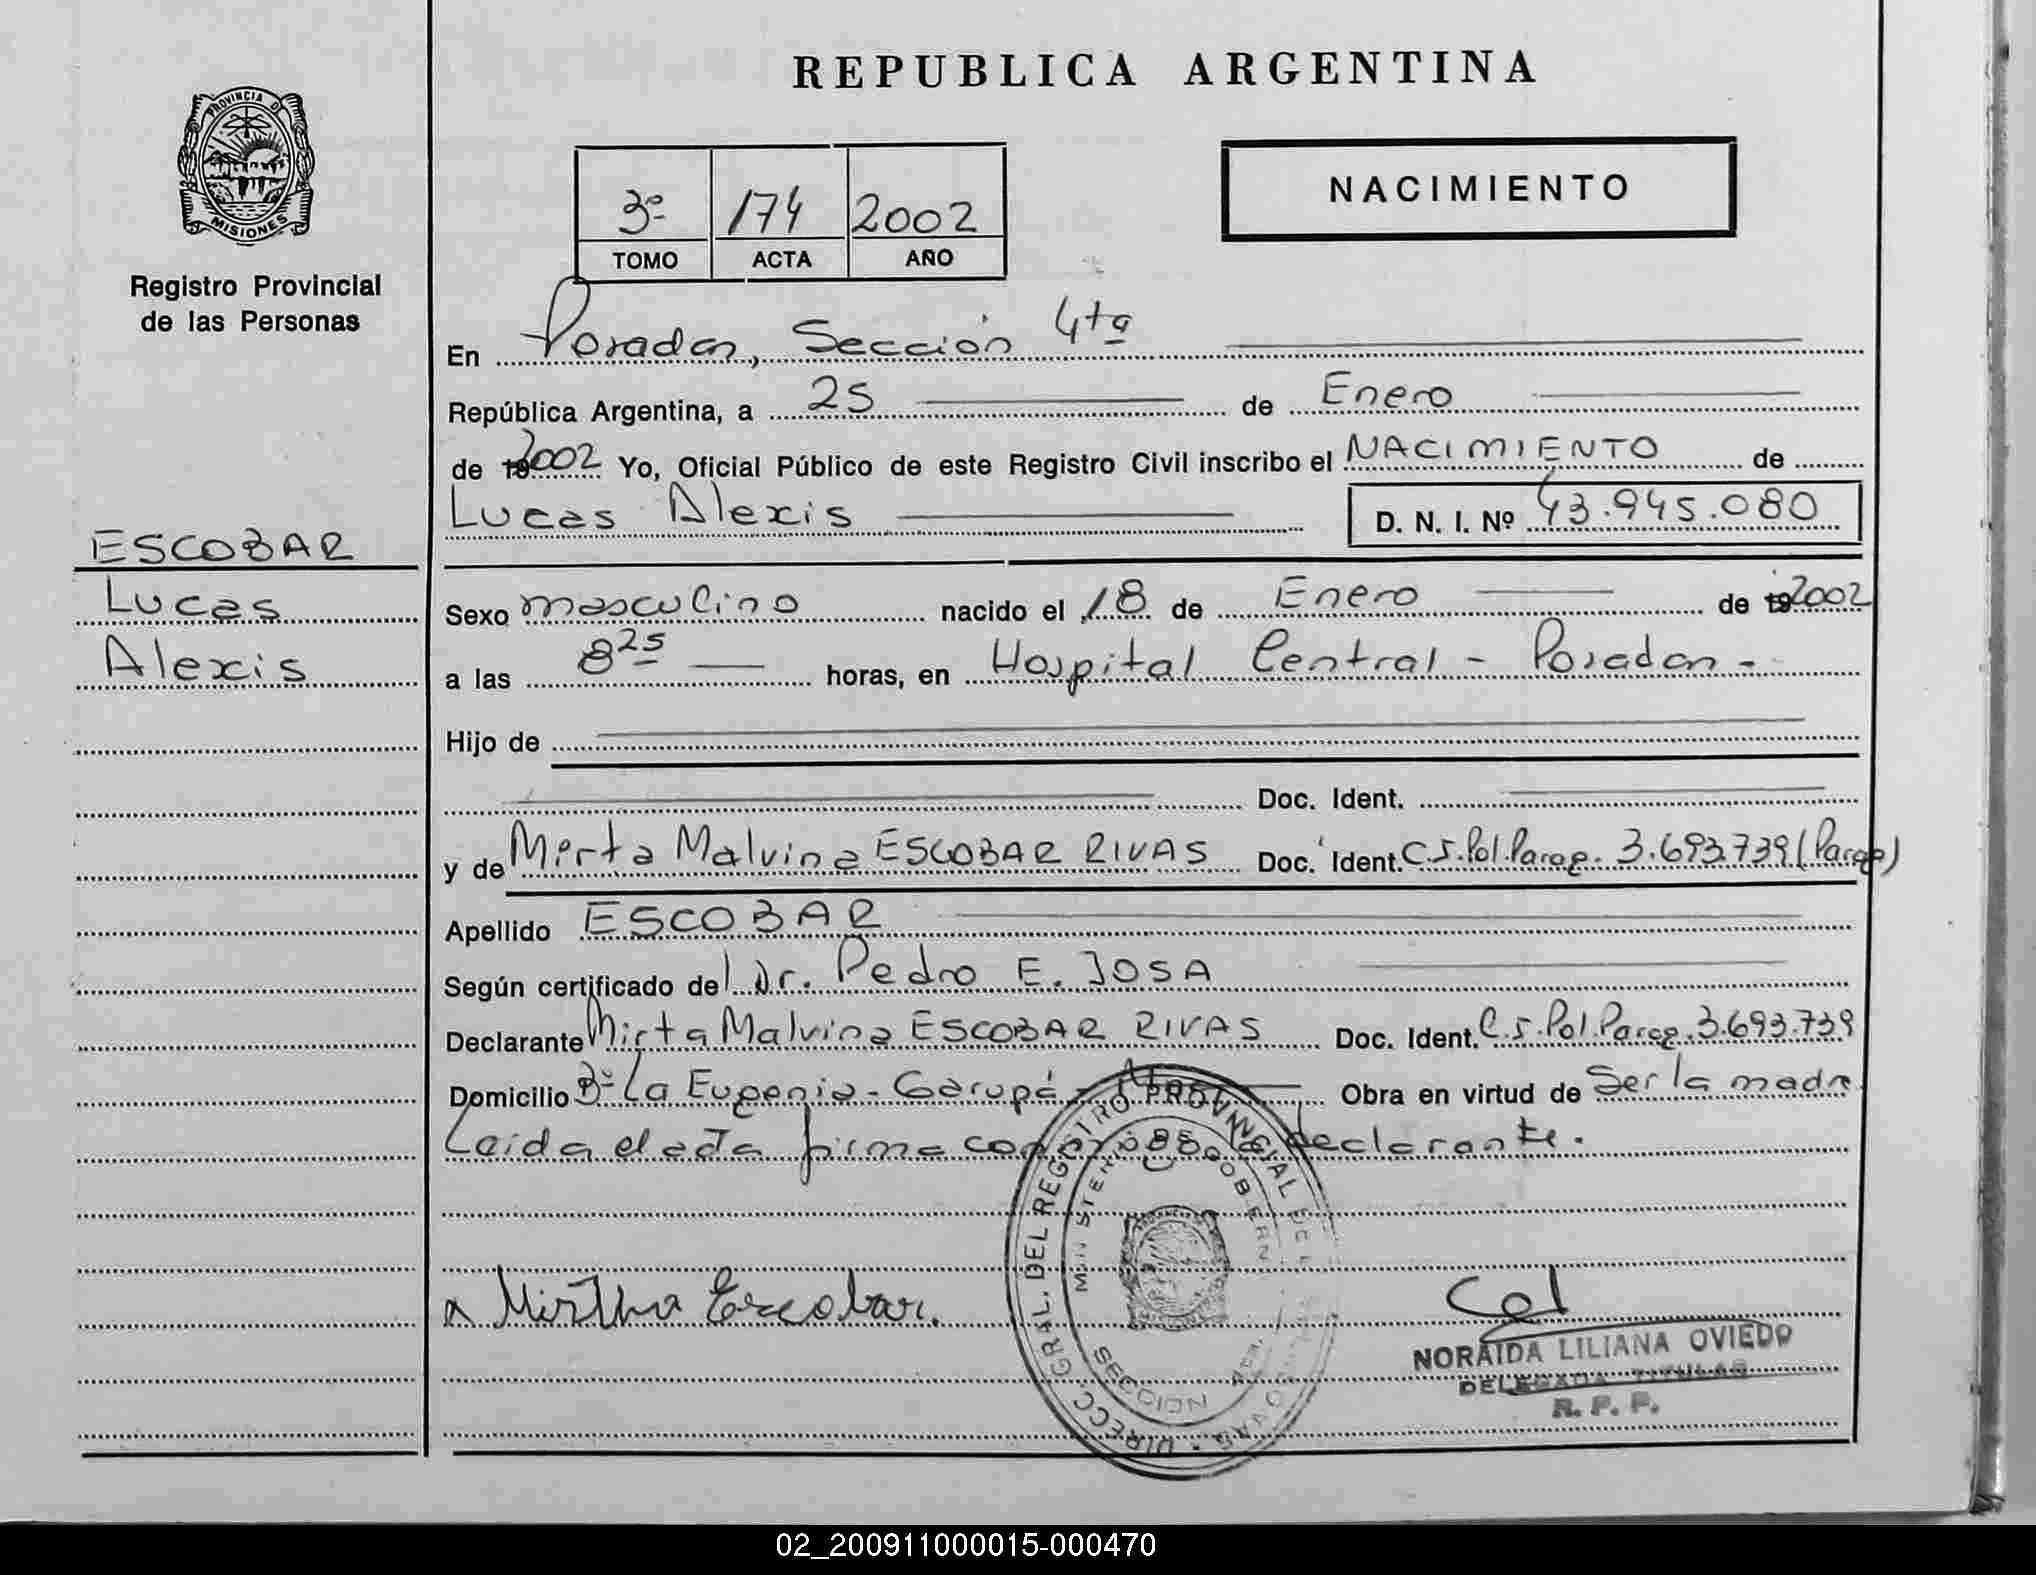 REPUBLICA ARGENTINA
PROVINCIA DE
MISIONES
Registro Provincial
de las Personas
3º 174 2002
TOMO ACTA AÑO
NACIMIENTO
En Posadas, Sección 4ta
República Argentina, a 25 de Enero
de 2002 Yo, Oficial Público de este Registro Civil inscribo el NACIMIENTO de
Lucas Alexis D. N. I. Nº 43.945.080
ESCOBAR
Lucas
Alexis
Sexo masculino nacido el 18 de Enero de 2002
a las 8 25 horas, en Hospital Central - Posadas -
Hijo de
Doc. Ident.
y de Mirta Malvina ESCOBAR RIVAS Doc. Ident. C.I. Pol. Parag. 3.693.739 (Parag)
Apellido ESCOBAR
Según certificado del Dr. Pedro E. JOSA
Declarante Mirta Malvina ESCOBAR RIVAS Doc. Ident. C.I. Pol. Parag. 3.693.739
Domicilio Bº La Eugenia - Garupá - Obra en virtud de Ser la madre
Leida el acta firma la declarante.
Mirtha Escobar.
DIRECC. GRAL. DEL REGISTRO PROVINCIAL DE
MINISTERIO GOBIERN
SECCION 4ta.
NORAIDA LILIANA OVIEDO
DELEGADA TITULAR
R. P. P.
02_200911000015-000470